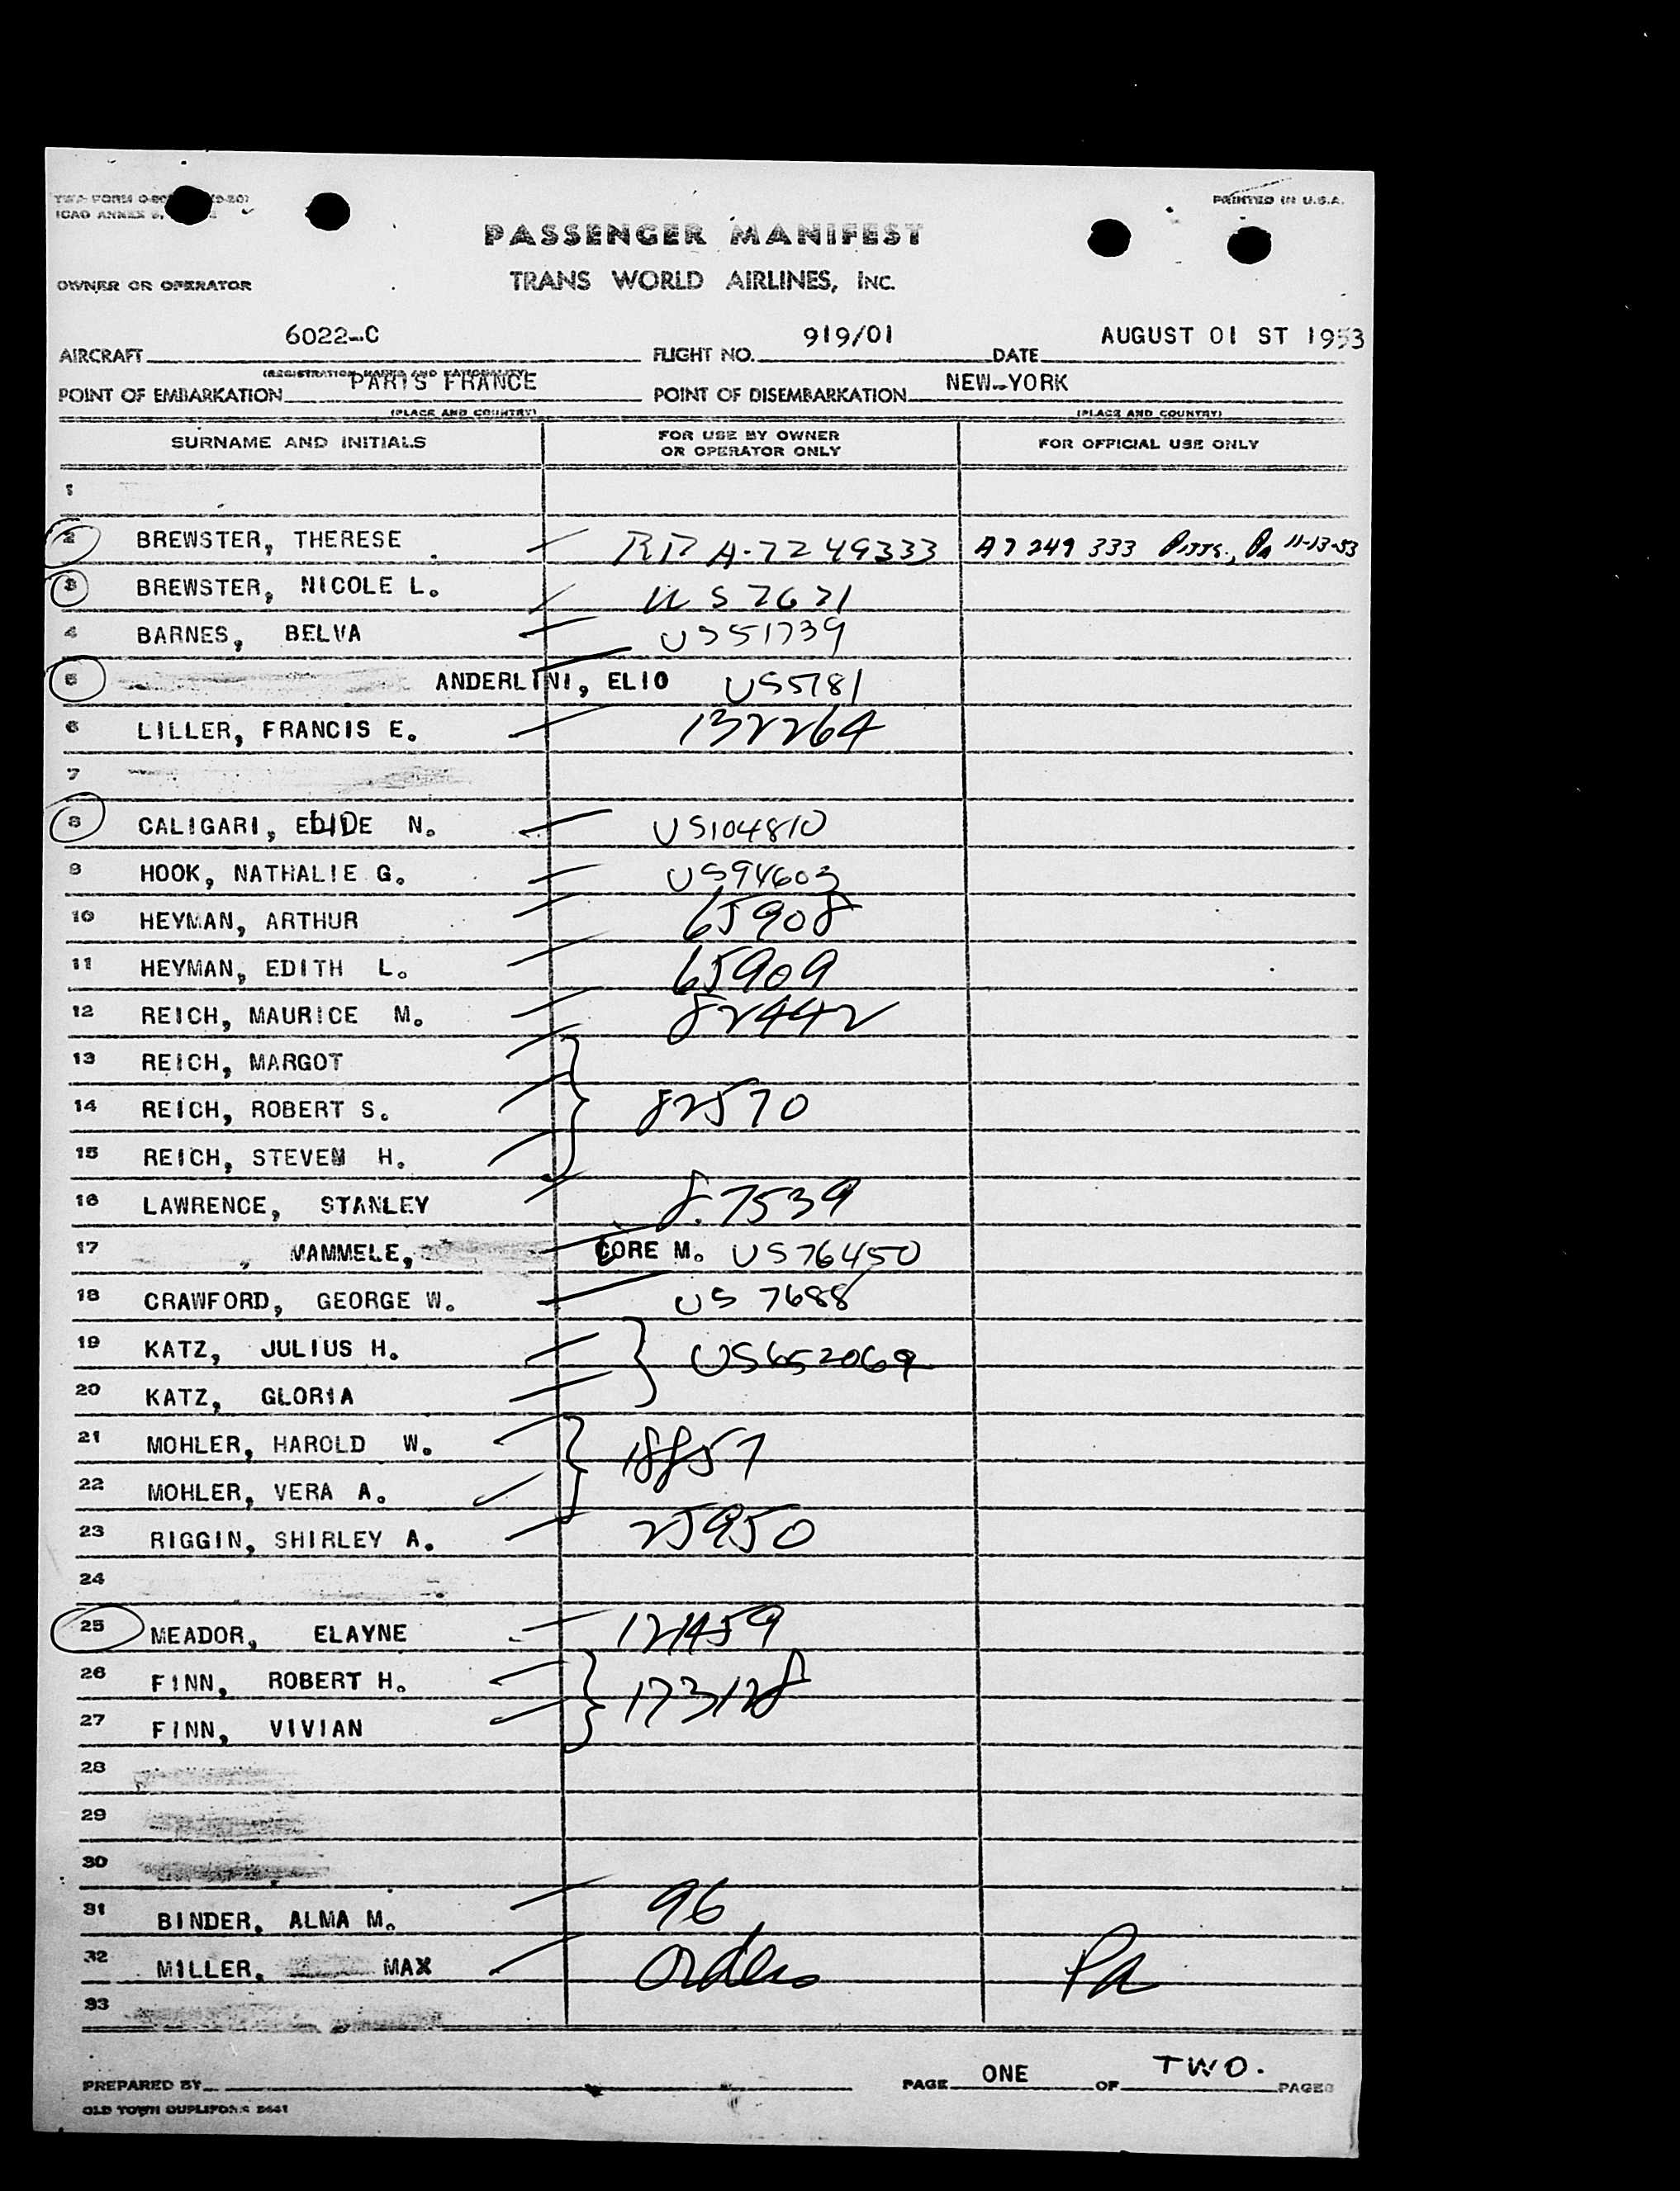 TWA FORM
ICAO ANNEX 9,
PRINTED IN U.S.A.
PASSENGER MANIFEST
OWNER OR OPERATOR
TRANS WORLD AIRLINES, INC.
AIRCRAFT 6022-C FLIGHT NO. 919/01 DATE AUGUST 01 ST 1953
(REGISTRATION MARKS AND NATIONALITY)
POINT OF EMBARKATION PARIS FRANCE POINT OF DISEMBARKATION NEW-YORK
(PLACE AND COUNTRY) (PLACE AND COUNTRY)
SURNAME AND INITIALS FOR USE BY OWNER OR OPERATOR ONLY FOR OFFICIAL USE ONLY
1
2 BREWSTER, THERESE RP A-7249333 A7 249 333 PITTS., PA 11-13-53
3 BREWSTER, NICOLE L. US 7671
4 BARNES, BELVA US51739
5 ANDERLINI, ELIO US5781
6 LILLER, FRANCIS E. 132264
7
8 CALIGARI, ELIDE N. US104810
9 HOOK, NATHALIE G. US94603
10 HEYMAN, ARTHUR 65908
11 HEYMAN, EDITH L. 65909
12 REICH, MAURICE M. 82442
13 REICH, MARGOT
14 REICH, ROBERT S. 82570
15 REICH, STEVEN H.
16 LAWRENCE, STANLEY 87539
17 MAMMELE, CORE M. US76450
18 CRAWFORD, GEORGE W. US 7688
19 KATZ, JULIUS H. US652069
20 KATZ, GLORIA
21 MOHLER, HAROLD W. 18857
22 MOHLER, VERA A.
23 RIGGIN, SHIRLEY A. 25950
24
25 MEADOR, ELAYNE 121459
26 FINN, ROBERT H. 173128
27 FINN, VIVIAN
28
29
30
31 BINDER, ALMA M. 96
32 MILLER, MAX Orders PA
33
PREPARED BY PAGE ONE OF TWO. PAGES
OLD TOWN